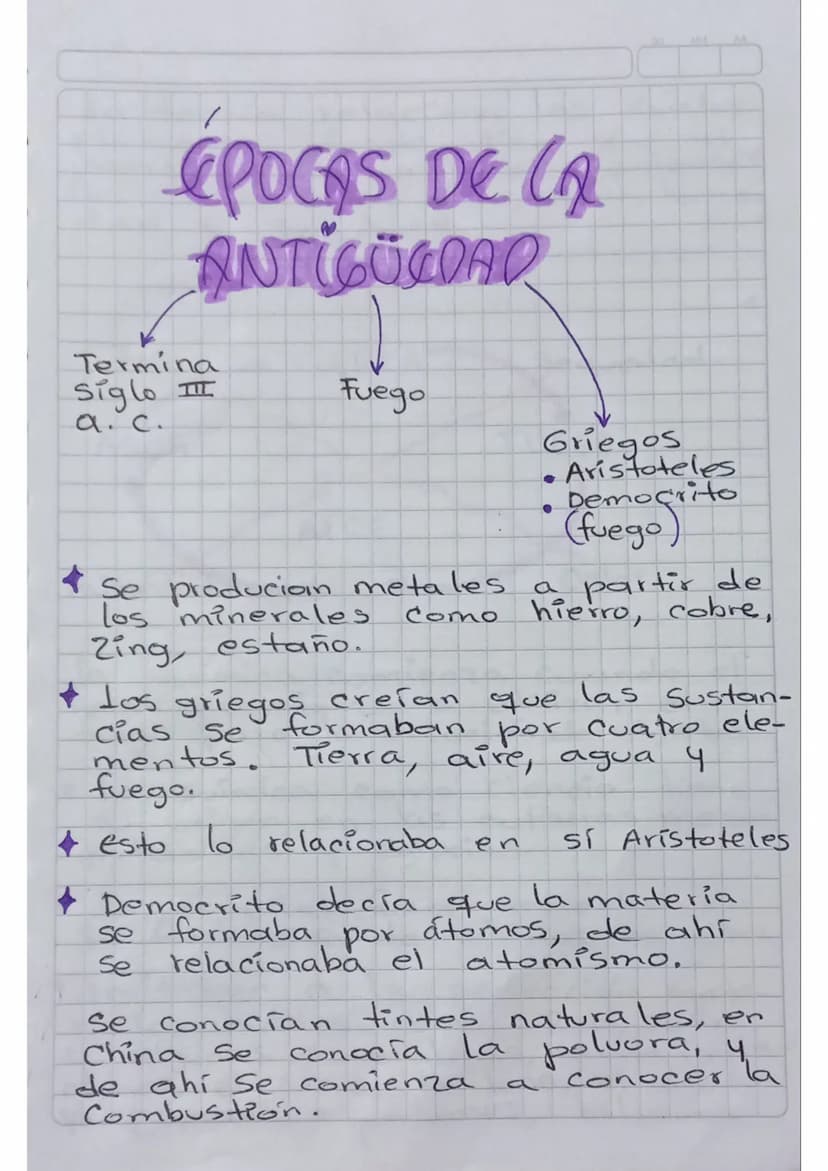 ÉPOCAS DE LA
ANTIGÜEDAD
Termina
siglo III
a. c.
Fuego
Griegos
• Aristoteles
• Democrito
(fuego)
Se producian metales a partir de
los minerales como hierro, cobre,
Zing, estaño.
Los griegos creían que las sustan-
cias se formaban por cuatro ele-
mentos. Tierra, aire, agua y
fuego.
esto lo relacionaba en sí Aristoteles
Democrito decía que la materia
se formaba por átomos, de ahí
se relacionaba el atomismo.
se conocían tintes naturales, en
China se conocía la polvora, y
de ahí se comienza a conocer la
Combustión.